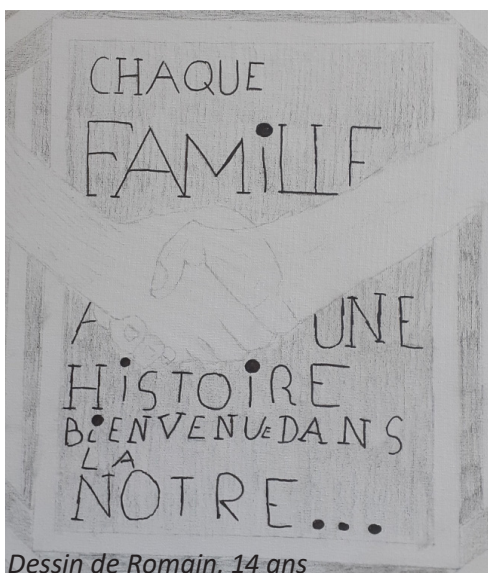 CHAQUE
FAMiLLE
A UNE
HiSTOiRE
BiENVENUE DANS
LA
NOTRE...
Dessin de Romain, 14 ans